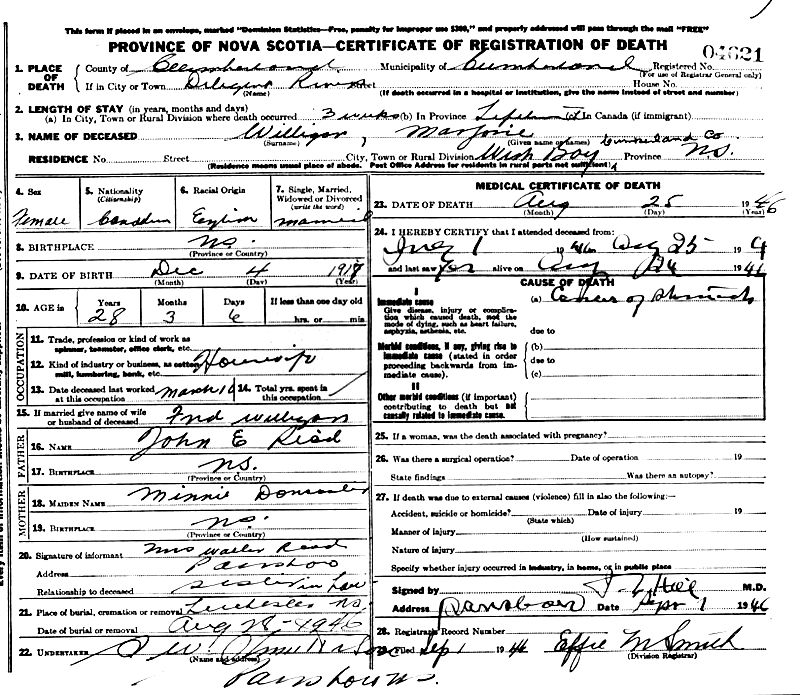 This form if placed in an envelope, marked "Dominion Statistics—Free, penalty for improper use $300," and properly addressed will pass through the mail "FREE"
PROVINCE OF NOVA SCOTIA—CERTIFICATE OF REGISTRATION OF DEATH
04621
1. PLACE OF DEATH County of Cumberland Municipality of Cumberland Registered No.
(For use of Registrar General only)
If in City or Town Diligent River Street House No.
(Name) (If death occurred in a hospital or institution, give the name instead of street and number)
2. LENGTH OF STAY (in years, months and days)
(a) In City, Town or Rural Division where death occurred 3 weeks (b) In Province Lifetime (c) In Canada (if immigrant)
3. NAME OF DECEASED Willigar, Marjorie
(Surname) (Given name or names) Cumberland Co
RESIDENCE No. Street City, Town or Rural Division Bay Province N.S.
(Residence means usual place of abode. Post Office Address for residents in rural parts not sufficient)
4. Sex 5. Nationality (Citizenship) 6. Racial Origin 7. Single, Married, Widowed or Divorced (write the word)
Female Canadian English married
8. BIRTHPLACE N.S.
(Province or Country)
9. DATE OF BIRTH Dec 4
(Month) (Day) (Year)
10. AGE in Years Months Days If less than one day old
28 3 6 hrs. or min
OCCUPATION
11. Trade, profession or kind of work as spinner, teamster, office clerk, etc.
12. Kind of industry or business, as cotton mill, lumbering, bank, etc. Housewife
13. Date deceased last worked at this occupation March 14. Total yrs. spent in this occupation
15. If married give name of wife or husband of deceased Fred Willigar
FATHER
16. NAME John E Read
17. BIRTHPLACE N.S.
(Province or Country)
MOTHER
18. MAIDEN NAME Minnie Doncaster
19. BIRTHPLACE N.S.
(Province or Country)
20. Signature of informant Mrs Walter Read
Address Parrsboro
Relationship to deceased sister in law
21. Place of burial, cremation or removal N.S.
Date of burial or removal Aug 28-1946
22. UNDERTAKER
(Name and address)
Parrsboro N.S.
MEDICAL CERTIFICATE OF DEATH
23. DATE OF DEATH Aug 25 1946
(Month) (Day) (Year)
24. I HEREBY CERTIFY that I attended deceased from:
1 1946 Aug 25 194
and last saw her alive on Aug 24 1946
CAUSE OF DEATH
I
Immediate cause
Give disease, injury or complication which caused death, not the mode of dying, such as heart failure, asphyxia, asthenia, etc.
(a) Cancer of Stomach
due to
Morbid conditions, if any, giving rise to immediate cause (stated in order proceeding backwards from immediate cause).
(b)
due to
(c)
II
Other morbid conditions (if important) contributing to death but not causally related to immediate cause.
25. If a woman, was the death associated with pregnancy?
26. Was there a surgical operation? Date of operation 19
State findings Was there an autopsy?
27. If death was due to external causes (violence) fill in also the following:—
Accident, suicide or homicide? Date of injury 19
(State which)
Manner of injury
(How sustained)
Nature of injury
Specify whether injury occurred in industry, in home, or in public place
Signed by Hill M.D.
Address Parrsboro Date Sept 1 1946
28. Registrar's Record Number
Filed Sep 1 1946 Effie M Smith
(Division Registrar)